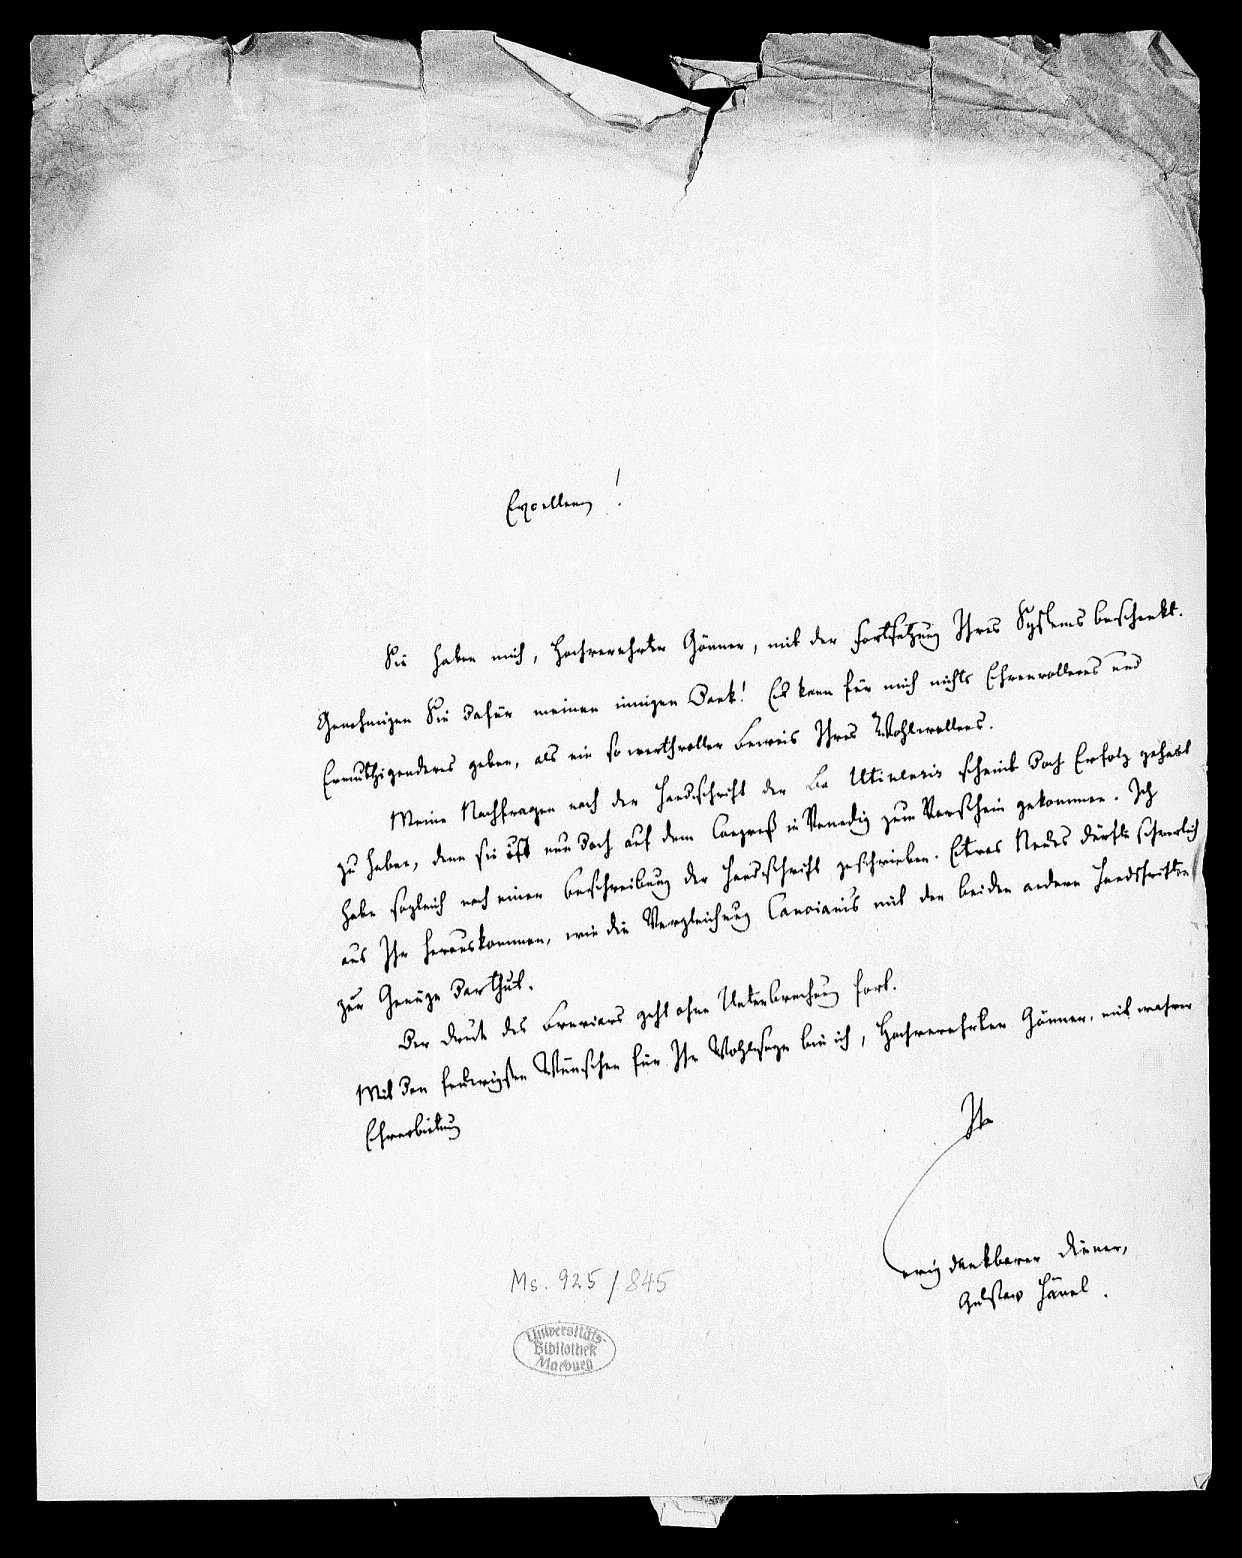 Excellenz!
Sie haben mich, hochverehrter Gönner, mit der Fortsetzung Ihres Systems beschenkt.
Genehmigen Sie dafür meinen innigen Dank! Es kann für mich nichts Ehrenvolleres und
Ermuthigenderes geben, als ein so werthvoller Beweis Ihres Wohlwollens.
Meine Nachfragen nach der Handschrift der Utinensis scheint doch Erfolg gehabt
zu haben, denn sie ist nun doch auf dem Congreß in Venedig zum Vorschein gekommen. Ich
habe sogleich nach einer Beschreibung der Handschrift geschrieben. Etwas Neues dürfte schwerlich
aus Ihr herauskommen, wie die Vergleichung Canciani's mit den beiden andern Handschriften
zur Genüge darthut.
Der Druck des Breviars geht ohne Unterbrechung fort.
Mit den feurigsten Wünschen für Ihr Wohlseyn bin ich, hochverehrter Gönner, mit wahrer
Ehrerbietung
Ihr
ewig dankbarer Diener,
Gustav Hänel.
Ms. 925/845
Universitäts-
Bibliothek
Marburg